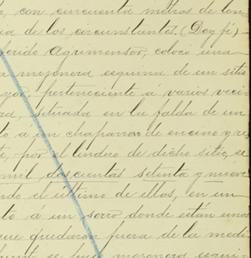 , con cincuenta metros de lon
cia de los circunstantes. (Doy fé)
ferido Agrimensor, colocó una
a mojonera esquina de un sitio
yor, perteneciente á varios veci
situada en la falda de un
to á un chaparro de encino y se
te, por el lindero de dicho sitio, se
mil doscientos setenta y nueve
ndo el último de ellos, en un
to á un cerro donde están unos
que quedaron fuera de la medi
mojonera esqui